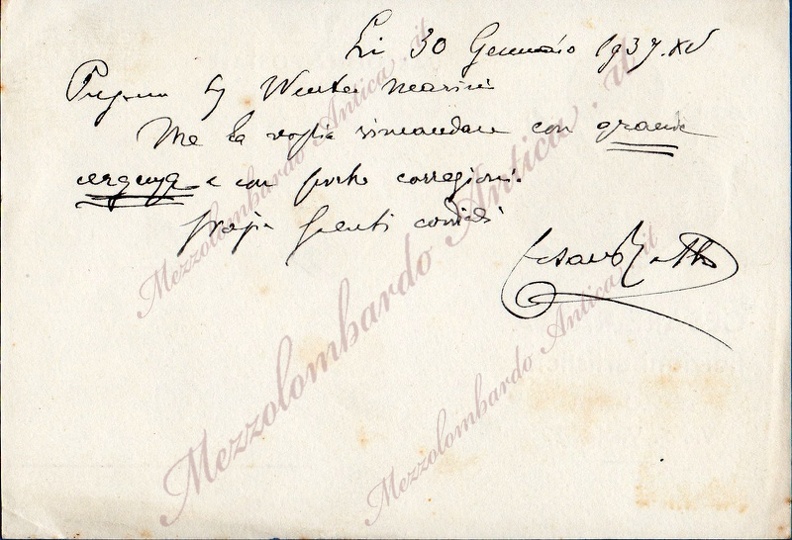 Li 30 Gennaio 1937.XV
Pregmo Sig Winter Marini
Me la voglia rimandare con grande
urgenza e con poche correzioni.
Grazie Saluti cordiali
Cesare
Mezzolombardo Antica.it
Mezzolombardo Antica.it
Mezzolombardo Antica.it